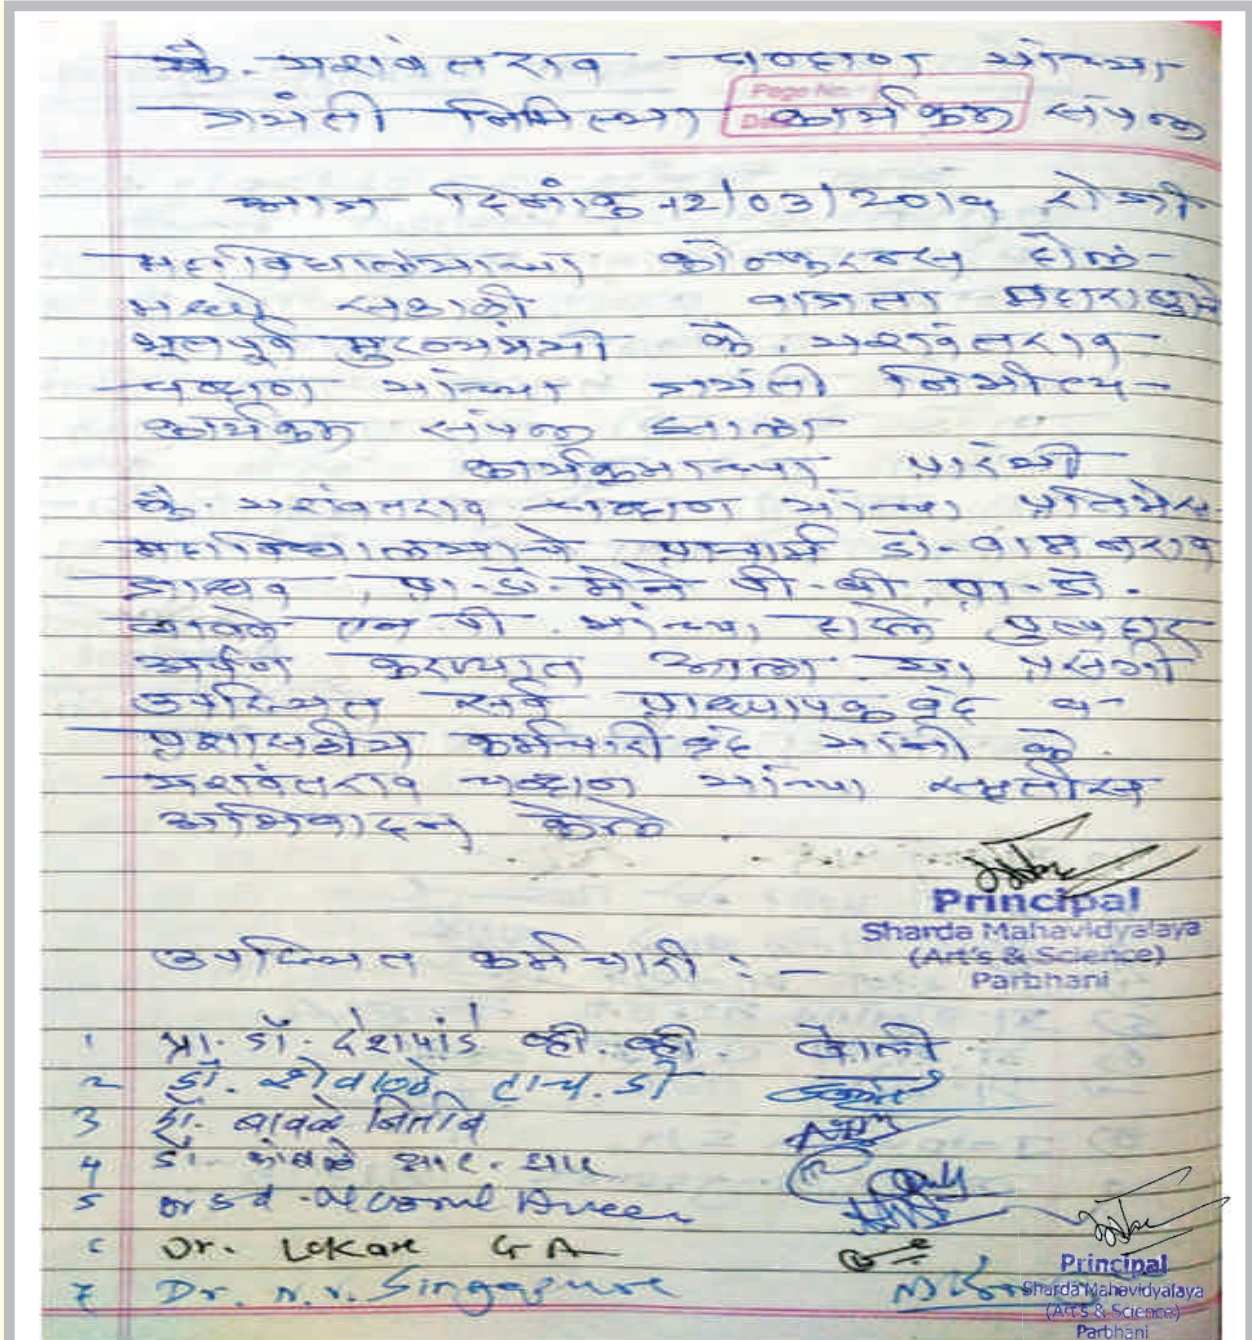 कै. यशवंतराव चव्हाण यांच्या
Page No.
जयंती निमित्या कार्यक्रम संपन्न
आज दिनांक 12/03/2019 रोजी
महाविद्यालयाच्या कॉन्फरन्स हॉल-
मध्ये सकाळी वाजता महाराष्ट्राचे
भूतपूर्व मुख्यमंत्री कै. यशवंतराव
चव्हाण यांच्या जयंती निमीत्य-
कार्यक्रम संपन्न झाला
कार्यक्रमाच्या प्रारंभी
कै. यशवंतराव चव्हाण यांच्या प्रतिमेस
महाविद्यालयाचे प्राचार्य डॉ. वामनराव
जाधव, प्रा. डॉ. मैने पी. बी, प्रा. डॉ.
बावळे एन. पी. यांच्या हस्ते पुष्पहार
अर्पण करण्यात आला. या प्रसंगी
उपस्थित सर्व प्राध्यापक वृंद व
प्रशासकीय कर्मचारी वृंद यांनी कै.
यशवंतराव चव्हाण यांच्या स्मृतीस
अभिवादन केले.
Principal
Sharda Mahavidyalaya
(Art's & Science)
Parbhani
उपस्थित कर्मचारी : -
1 प्रा. डॉ. देशपांडे व्ही. व्ही.
2 डॉ. शेवाळे एच. डी
3 डॉ. बावळे नितीन
4 डॉ. कांबळे आर. आर
5 Dr Sd
6 Dr. Lokare G A
7 Dr. N. V. Singapure
Principal
Sharda Mahavidyalaya
(Art'S & Science)
Parbhani